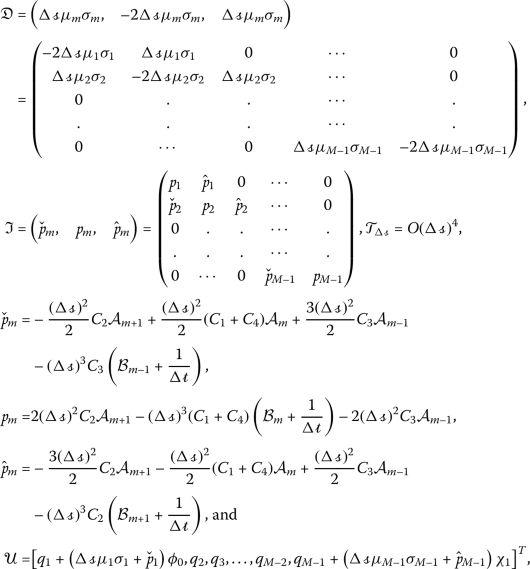 𝔇 = (Δ𝓈μ_mσ_m, −2Δ𝓈μ_mσ_m, Δ𝓈μ_mσ_m)
= ( −2Δ𝓈μ_1σ_1 Δ𝓈μ_1σ_1 0 ⋯ 0
Δ𝓈μ_2σ_2 −2Δ𝓈μ_2σ_2 Δ𝓈μ_2σ_2 ⋯ 0
0 . . ⋯ .
. . . ⋯ .
0 ⋯ 0 Δ𝓈μ_{M−1}σ_{M−1} −2Δ𝓈μ_{M−1}σ_{M−1} ),
ℑ = (p̌_m, p_m, p̂_m) = ( p_1 p̂_1 0 ⋯ 0
p̌_2 p_2 p̂_2 ⋯ 0
0 . . ⋯ .
. . . ⋯ .
0 ⋯ 0 p̌_{M−1} p_{M−1} ), 𝒯_{Δ𝓈} = O(Δ𝓈)^4,
p̌_m = − (Δ𝓈)^2/2 C_2𝒜_{m+1} + (Δ𝓈)^2/2 (C_1 + C_4)𝒜_m + 3(Δ𝓈)^2/2 C_3𝒜_{m−1}
− (Δ𝓈)^3C_3 (ℬ_{m−1} + 1/Δ𝓉),
p_m = 2(Δ𝓈)^2C_2𝒜_{m+1} − (Δ𝓈)^3(C_1 + C_4) (ℬ_m + 1/Δ𝓉) − 2(Δ𝓈)^2C_3𝒜_{m−1},
p̂_m = − 3(Δ𝓈)^2/2 C_2𝒜_{m+1} − (Δ𝓈)^2/2 (C_1 + C_4)𝒜_m + (Δ𝓈)^2/2 C_3𝒜_{m−1}
− (Δ𝓈)^3C_2 (ℬ_{m+1} + 1/Δ𝓉), and
𝒰 = [q_1 + (Δ𝓈μ_1σ_1 + p̌_1) ϕ_0, q_2, q_3, …, q_{M−2}, q_{M−1} + (Δ𝓈μ_{M−1}σ_{M−1} + p̂_{M−1}) χ_1]^T,